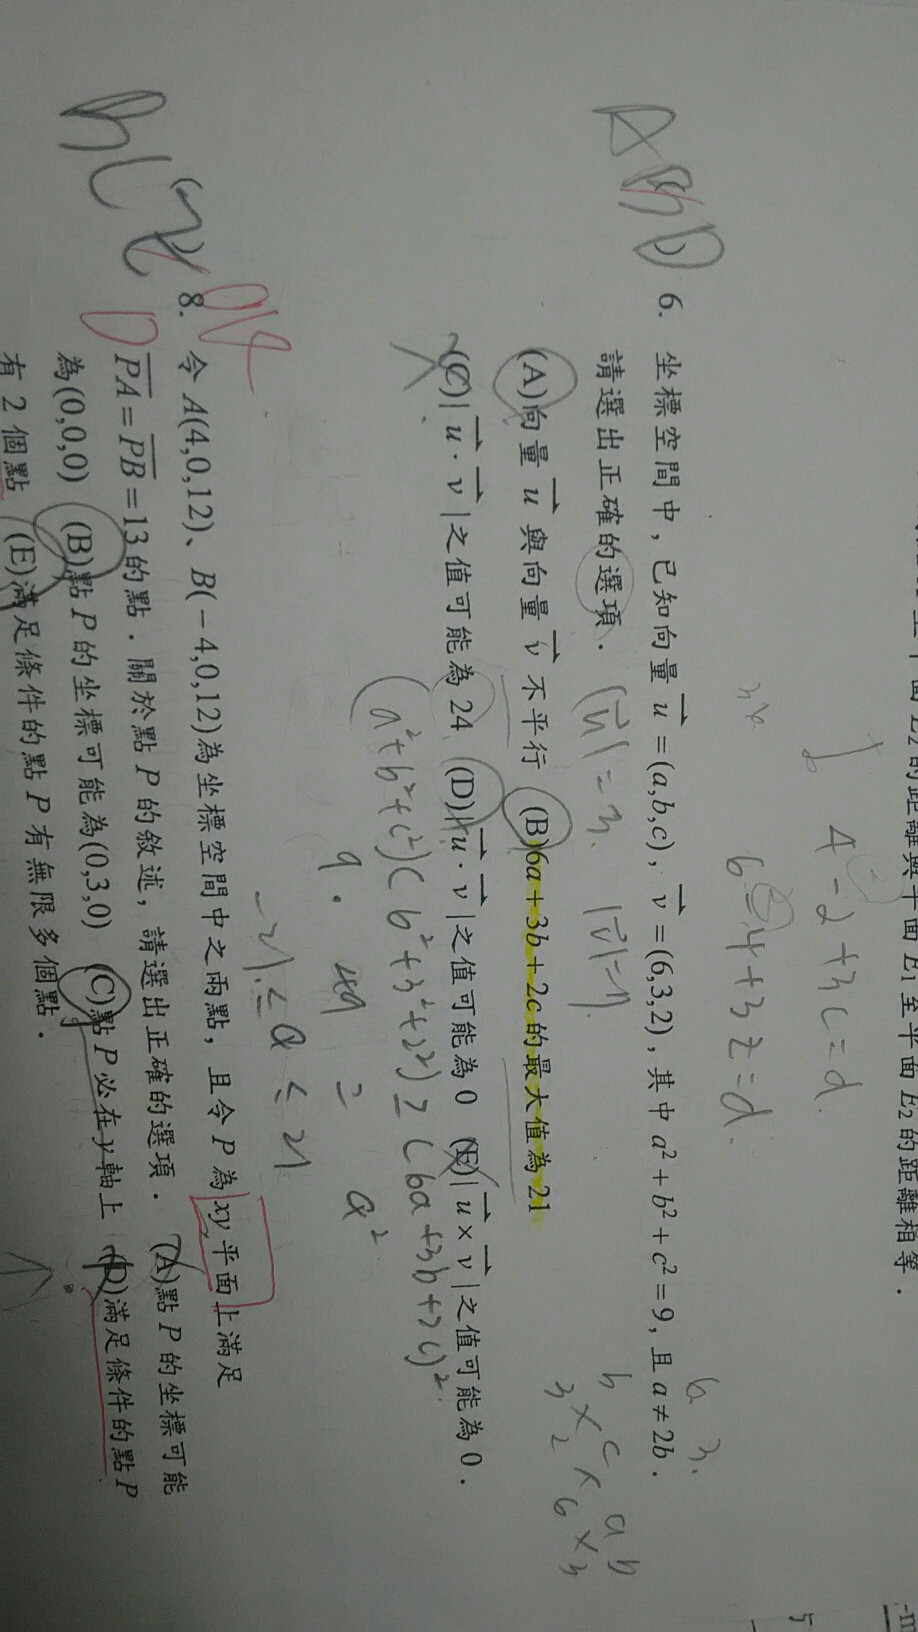 面 E2 的距離與平面 E1 至平面 E2 的距離相等．
4-2+3c=d
6-4+3z=d.
ABD
6. 坐標空間中，已知向量 u=(a,b,c)，v=(6,3,2)，其中 a²+b²+c²=9，且 a≠2b．
請選出正確的選項． |u|=3. |v|=7.
(A)向量 u 與向量 v 不平行 (B)6a+3b+2c 的最大值為 21
(C)|u·v|之值可能為 24 (D)|u·v|之值可能為 0 (E)|u×v|之值可能為 0．
b c a b
3 2 6 3
(a²+b²+c²)(6²+3²+2²)≥(6a+3b+2c)².
9·49=a²
-21≤a≤21
BC
D
8. 令 A(4,0,12)、B(-4,0,12)為坐標空間中之兩點，且令 P 為 xy 平面上滿足
PA=PB=13 的點．關於點 P 的敘述，請選出正確的選項． (A)點 P 的坐標可能
為(0,0,0) (B)點 P 的坐標可能為(0,3,0) (C)點 P 必在 y 軸上 (D)滿足條件的點 P
有 2 個點 (E)滿足條件的點 P 有無限多個點．